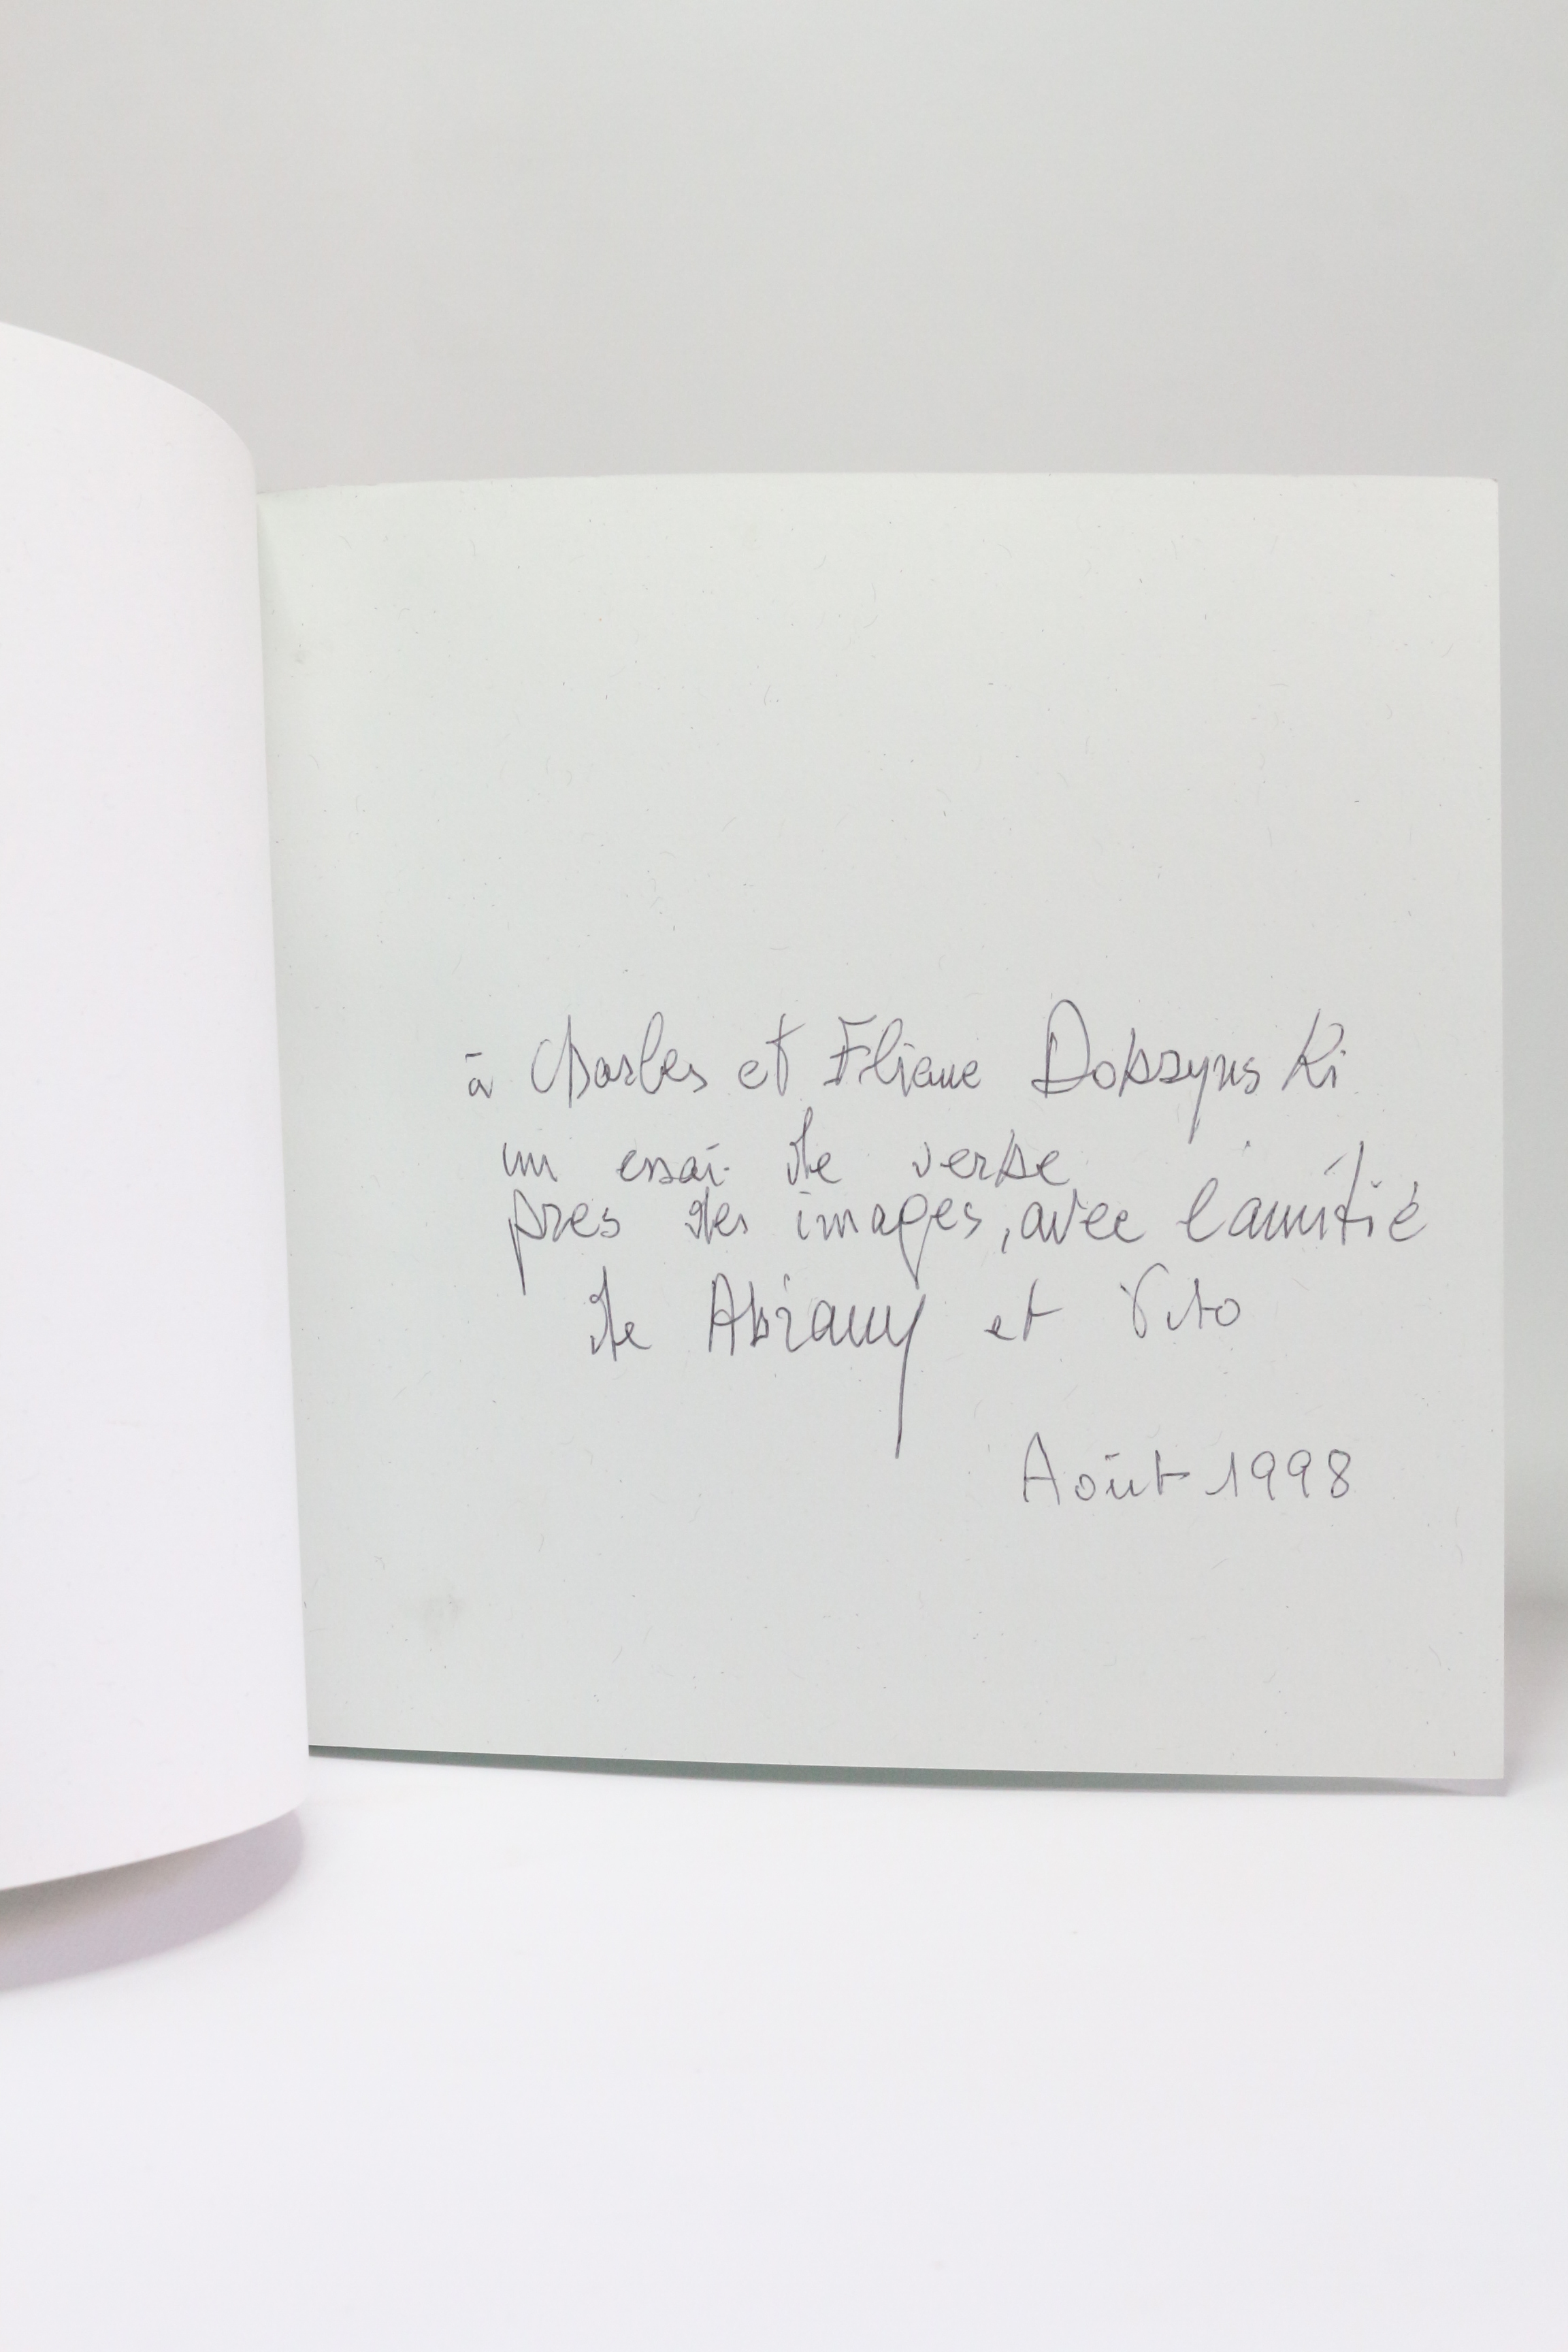 à Charles et Eliane Dobzynski
un essai de verbe
pres des images, avec l'amitié
de Abramy et Vito
Août 1998